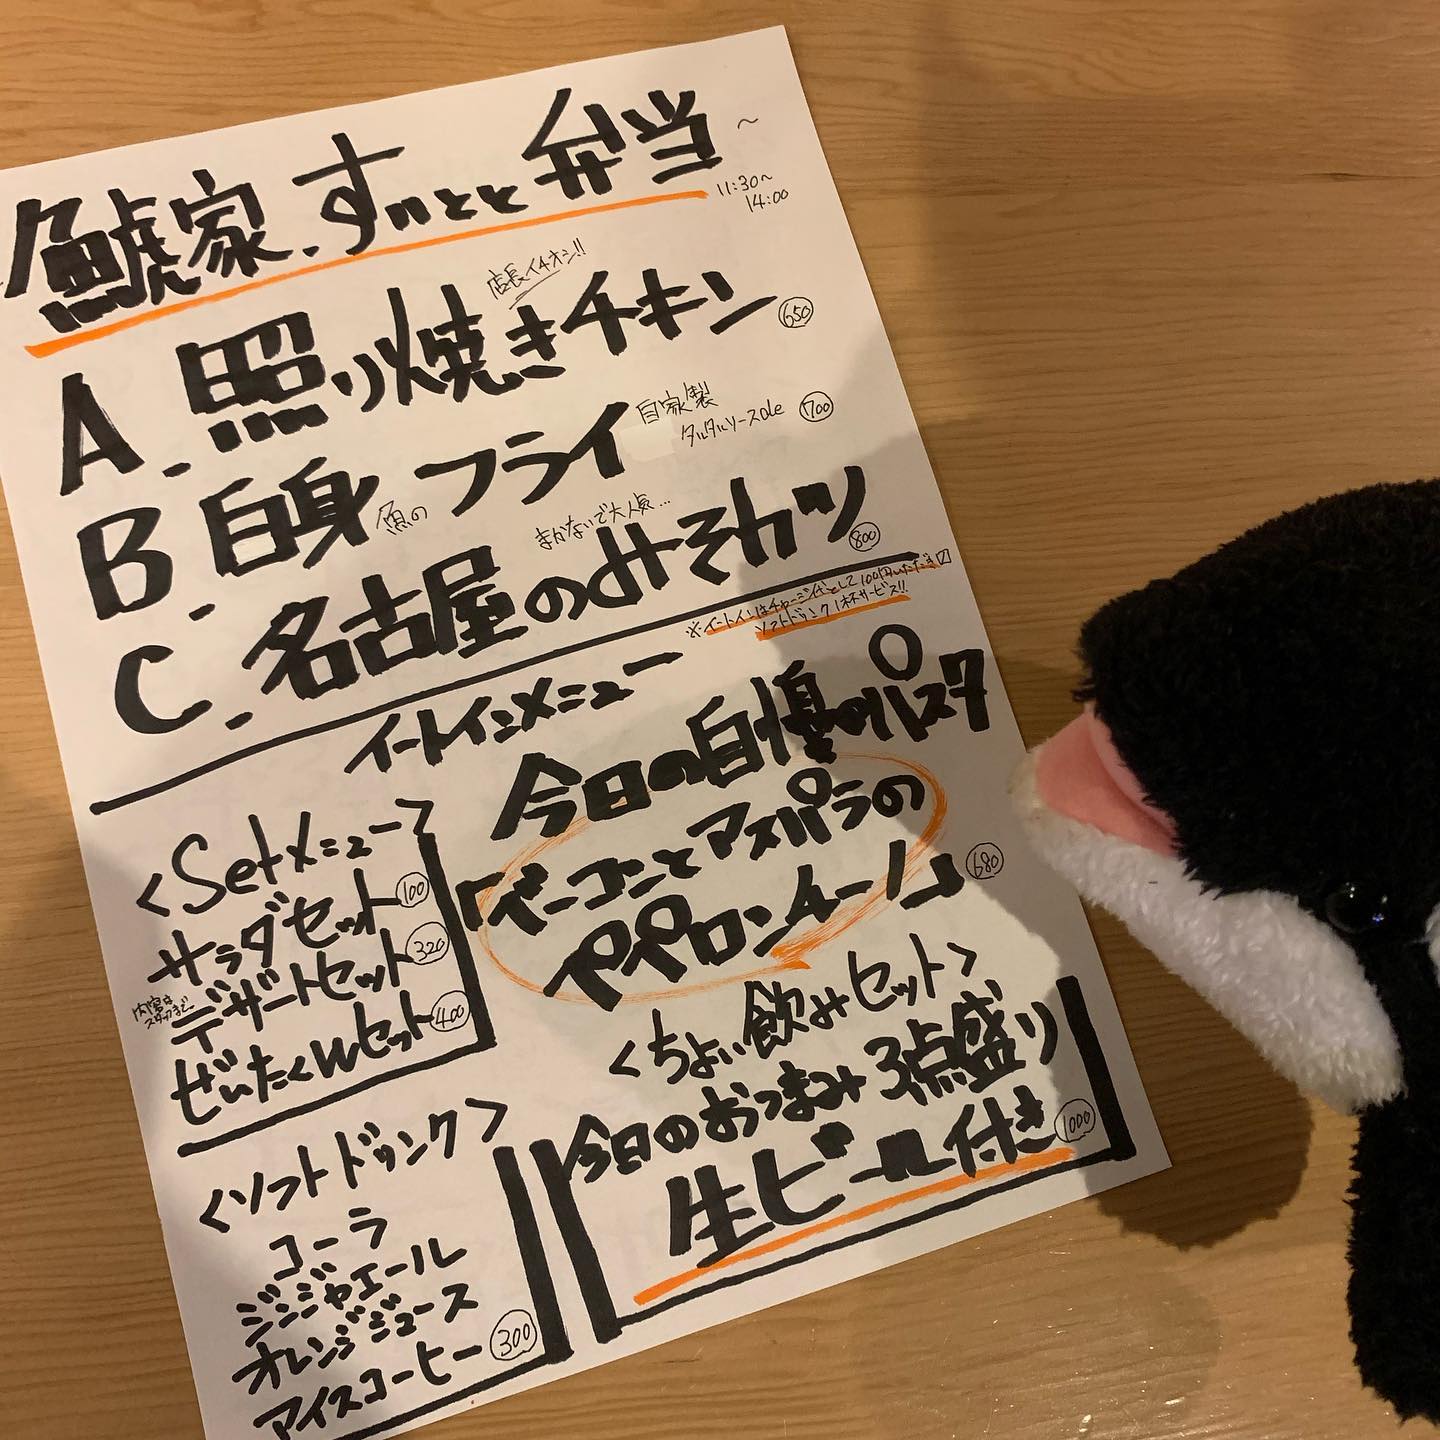 鯱家.すいとと弁当~
11:30~
14:00
店長イチオシ!!
A.照り焼きチキン 650
B.白身魚のフライ 自家製
タルタルソースde 700
まかないで大人気…
C.名古屋のみそカツ 800
※イートインはチャージ代として100円いただき〼
ソフトドリンク1杯サービス!!
イートインメニュー
<Setメニュー>
サラダセット 100
デザートセット 320
内容は
スタッフまで。
ぜいたくWセット 400
今日の自慢のパスタ
「ベーコンとアスパラの
ペペロンチーノ」 680
<ちょい飲みセット>
今日のおつまみ3点盛り
生ビール付き 1000
<ソフトドリンク>
コーラ
ジンジャエール
オレンジジュース
アイスコーヒー 300